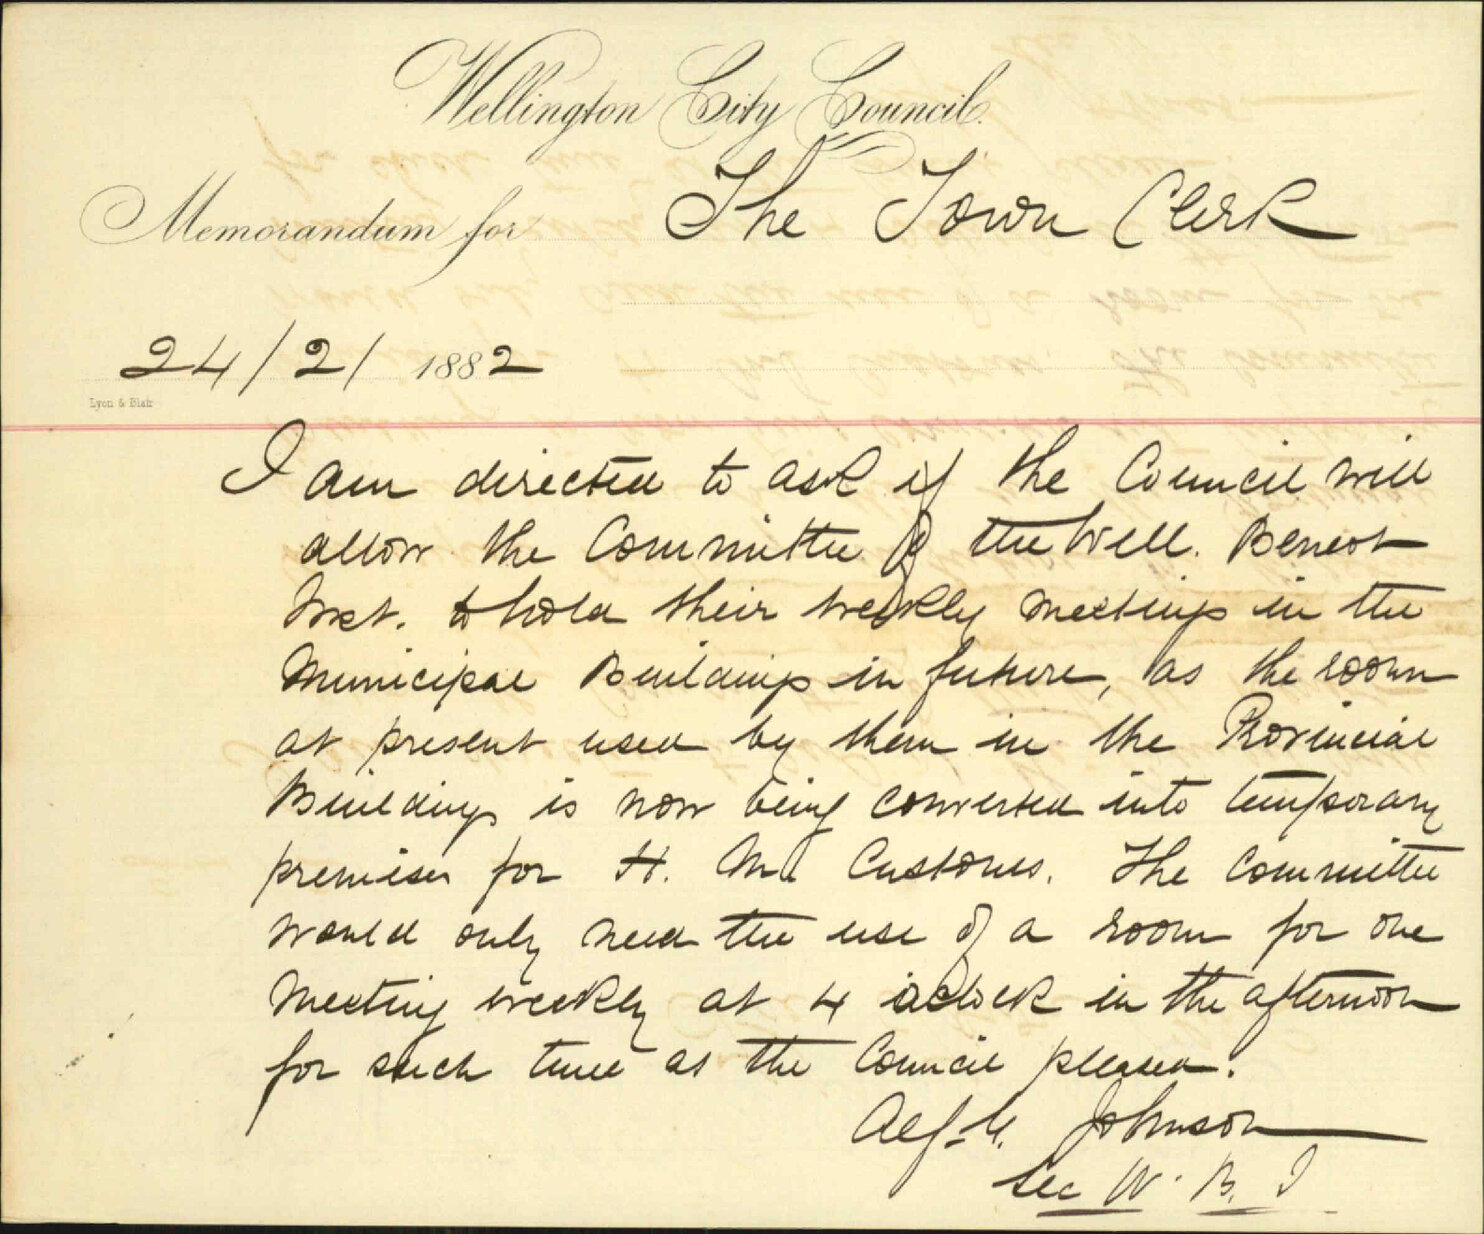 Wellington City Council.
Memorandum for The Town Clerk
24/2/1882
Lyon & Blair
I am directed to ask if the Council will
allow the Committee of the Well. Benevt
Inst. to hold their weekly meetings in the
Municipal Buildings in future, as the room
at present used by them in the Provincial
Buildings is now being converted into temporary
premises for H. M. Customs. The Committee
would only need the use of a room for one
meeting weekly at 4 oclock in the afternoon
for such time as the Council pleased.
Alf. G. Johnson
Sec W. B. I